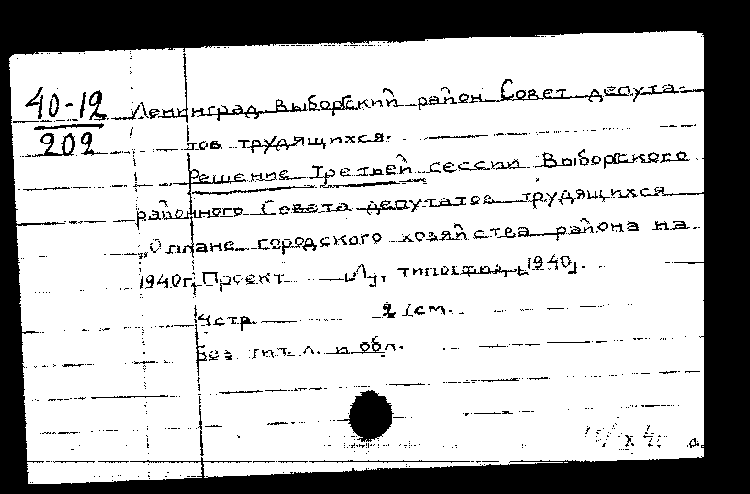 40-12
202
Ленинград. Выборгский район Совет депута-
тов трудящихся.
Решение Третьей сессии Выборгского
районного Совета депутатов трудящихся
„О плане городского хозяйства района на
1940г. Проект [Л], типолитогр., [1940].
4 стр. 21см.
Без тит. л. и обл.